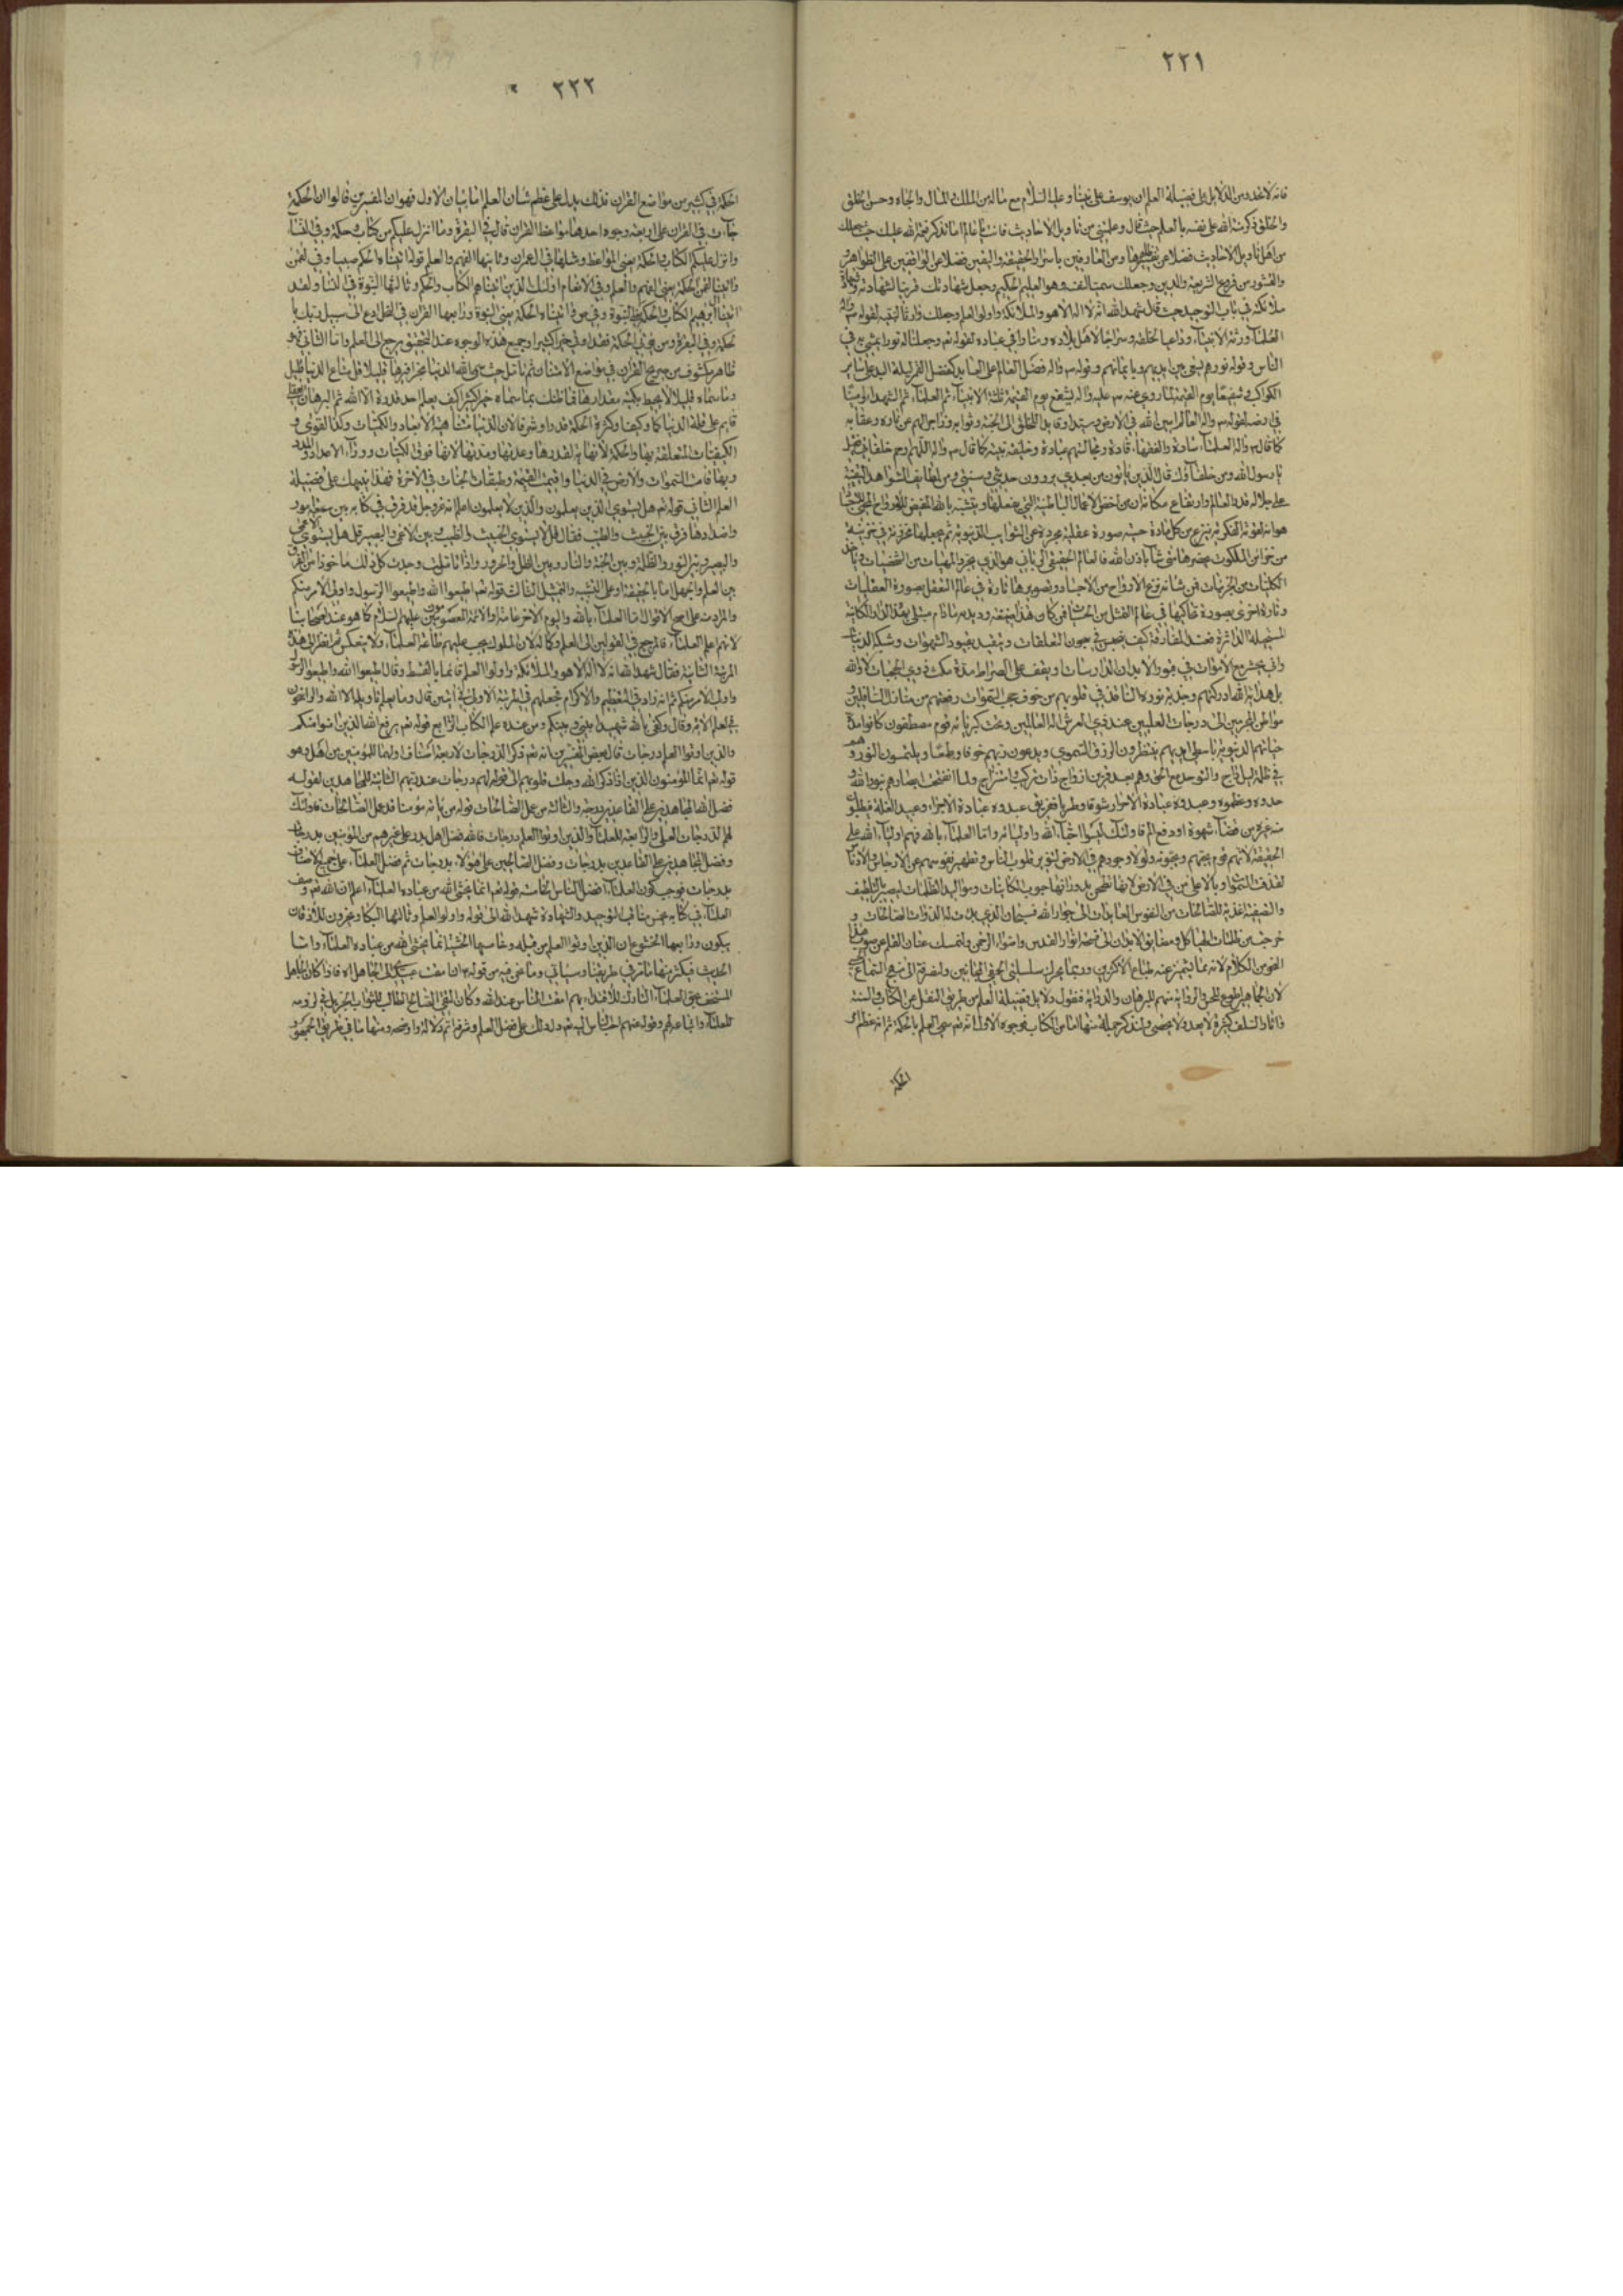 ٢٢١
فانه لا نجد و من الدلايل على فضيلة العلم ان يوسف على نبينا و عليه السلام مع ماله من الملك و المال و الجاه و حسن الخلق
و الخلق ذكر منة الله على نفسه بالعلم حيث قال و علمتني من تاويل الاحاديث فانت يا عالم اما تذكر نعمة الله عليك حيث جعلك
من اهل تاويل الاحاديث فضلا عن و من العارفين باسرار الحقيقة و اليقين فضلا عن الواقفين على الظواهر
و القشور من فروع الشريعة و الدين و جعلك سميا لنفسه و هو العليم الحكيم و جعل شهادتك قرينا لشهادته و شهادة
ملائكته في باب التوحيد حيث قال شهد الله انه لا اله الا هو و الملائكة و اولوا العلم و جعلك وارثا لنبيه لقوله ص و اله
العلماء ورثة الانبياء و داعيا لخلقه و سراجا لاهل بلاده و منارا في عباده لقوله تعم و جعلنا له نورا يمشي به في
الناس و قوله نورهم يسعى بين ايديهم و بايمانهم و قوله ص و اله فضل العالم على العابد كفضل القمر ليلة البدر على ساير
الكواكب و شفيعا يوم القيمة لما روي عنه ص عليه و اله يشفع يوم القيمة ثلثة الانبياء ثم العلماء ثم الشهداء و امينا
في ارضه لقوله ص و اله العالم امين الله في الارض و سيدا و قايدا للخلائق الى الجنة و ثوابه و زاجرا لهم عن ناره و عقابه
كما قال ص و اله العلماء سادة و الفقهاء قادة و مجالستهم عبادة و خليفة نبيه كما قال ص و اله اللهم ارحم خلفائي فقيل
يا رسول الله و من خلفاؤك قال الذين ياتون من بعدي يروون حديثي و سنتي و من لطايف الشواهد البينة
على جلالة قدر العالم و ارتفاع مكانه ان من اخص الاعمال الباطنة التي يفعلها و يتشبه بالله المفيض للارواح
هو انه لقوته الفكرية ينزع من كل مادة حسية صورة عقلية مجردة عن الشوايب الدنيوية ثم يجعلها مخزونة في خزينة
من خزائن الملكوت يحضرها متى شاء باذن الله فالعالم الحقيقي الرباني هو الذي يجرد المهيات من الشخصيات و ياخذ
الكليات من الجزئيات فمن شانه نزع الارواح من الاجساد و تصويرها تارة في عالم التعقل بصورة العقليات
و تارة اخرى بصورة تحاكيها في عالم التمثل من الحسيات فمن كان هذا صفته و ديدنه ما دام مبتلى بهذا الدار الكاينة
المستحيلة الداثرة فعند المفارقة كيف يحبس في سجون التعلقات و يتقيد بقيود الشهوات و شبكة الدنيا
و اني يحشر مع الاموات في قبور الابدان الدارسات و يقف على الصراط مدة مكث ذوي الحجبات كلا و الله
بل هداية الله ادركتهم و جذبة نوره النافذ في قلوبهم من خوف حجب السموات رفعتهم من منازل السافلين و
مواطن المجرمين الى درجات العليين عند ذي العرش اله العالمين و تحت كبريائه قوم مصطفون كانوا مدة
حياتهم الدنيوية باسطي ايديهم ينتظرون الرزق السموي و يدعون ربهم خوفا و طمعا و يلتمسون النور و هم
في ظلمة ليل داج و التوحد مع الحق و هم بعد قرين ازواج ذات تركيب و امتزاج و لما انفتحت ابصارهم بنور الله و
حدوه و عظموه و عبدوه عبادة الاحرار شوقا و طربا فغيرهم عبدوه عبادة الاجراء و عبيد الغلة فيطلبون
منه غيره من قضاء شهوة او دفع الم فاولئك ليسوا احباء الله و اوليائه و اما العلماء بالله فهم اولياء الله على
الحقيقة لانهم قوم يحبهم و يحبونه و لولا وجودهم في الارض لتنوير قلوب الناس و تطهير نفوسهم عن الارجاس و الادناس
لقذفت السموات بالاعلى من في الارض لانها طحن يدور رحاها حبوب الكاينات و مواليد الظلمات ليصير اللطيف
و الصفية اغذية للصالحات من النفوس العابدات الى جوار الله فسبحان الذي يدبت له الذوات الصالحات و
خرجت من ظلمات الهياكل و مضايق الابدان الى فسحة انوار القدس و استواء الرحمن و لنمسك عنان القلم عن صوب هذا
الفن من الكلام لانه مما تشمئز عنه طباع الاكثرين و ربما يحرك سلسلتي الحمقى المجانين و لنصرفه الى نهج السماع
لان الجماهير اطوع للحس و الرواية منهم للبرهان و الدراية فنقول دلايل فضيلة العلم من طريق النقل من الكتاب و السنة
و اثار السلف كثيرة لا تعد و لا تحصى و لنذكر جملة منها اما من الكتاب فوجوه الاول انه تعم سمى العلم بالحكمة ثم انه عظم امر
الحكمة
٢٢٢
الحكمة في كثير من مواضع القران فذلك يدل على عظم شان العلم اما بيان الاول فهو ان المفسرين قالوا ان الحكمة
جاءت في القران على اربعة وجوه احدها مواعظ القران قال في البقرة و ما انزل عليكم من كتاب و حكمة و في النساء
و انزل عليكم الكتاب و الحكمة يعني المواعظ و مثلها في ال عمران و ثانيها الفهم و العلم قوله اتيناه الحكم صبيا و في لقمن
و اتينا لقمن الحكمة يعني الفهم و العلم و في الانعام اولئك الذين اتيناهم الكتاب و الحكم و ثالثها النبوة في النساء و لقد
اتينا ال ابرهيم الكتاب و الحكمة يعني النبوة و في ص و اتيناه الحكمة يعني النبوة و رابعها القران في النحل ادع الى سبيل ربك با
لحكمة و في البقرة و من يؤتى الحكمة فقد اوتي خيرا كثيرا و جميع هذه الوجوه عند التحقيق يرجع الى العلم و اما الثاني فهو
ظاهر مكشوف من صريح القران في مواضع الامتنان ثم تامل حيث سمى الله الدنيا بحذافيرها قليلا قل متاع الدنيا قليل
و ما سماه قليلا لا يحيط بكنه مقدارها فما ظنك بما سماه خيرا كثيرا كيف يعلم احد قدره الا الله ثم البرهان العقلي
قايم على قلة الدنيا كما و كيفا و كثرة الحكمة قدرا و شرفا لان الدنيا متناهية الابعاد و الكميات و كذا القوى و
الكيفيات المتعلقة بها و الحكمة لا نهاية لقدرها و عدتها و مدتها لانها فوق الكميات و وراء الاعداد و المدد
و بها قامت السموات و الارض في الدنيا و اقيمت القيمة و طبقات الجنات في الاخرة فهذا ينبهك على فضيلة
العلم الثاني قوله تعم هل يستوي الذين يعلمون و الذين لا يعلمون اعلم انه عز و جل قد فرق في كتابه بين سبعة امور
و اضدادها فرق بين الخبيث و الطيب فقال قل لا يستوي الخبيث و الطيب و بين الاعمى و البصير قل هل يستوي الاعمى
و البصير و بين النور و الظلمة و بين الجنة و النار و بين الظل و الحرور و اذا تاملت وجدت كل ذلك ماخوذا من الفرق
بين العلم و الجهل اما بالحقيقة او على التشبيه و التمثيل الثالث قوله تعم اطيعوا الله و اطيعوا الرسول و اولي الامر منكم
و المراد منه على اصح الاقوال اما العلماء بالله و اليوم الاخر عامة او الائمة المعصومين عليهم السلام كما هو عند اصحابنا
لانهم اعلم العلماء فالمرجع في القولين الى العلم و كما له لان الملوك يجب عليهم طاعة العلماء و لا ينعكس ثم انظر الى هذه
المرتبة الثانية فقال شهد الله انه لا اله الا هو و الملائكة و اولوا العلم قائما بالقسط و قال اطيعوا الله و اطيعوا الرسول
و اولي الامر منكم ثم انه زاد في التعظيم و الاكرام فجعلهم في المرتبة الاولى في ايتين قال و ما يعلم تاويله الا الله و الراسخون
في العلم الاية و قال و كفى بالله شهيدا بيني و بينكم و من عنده علم الكتاب الرابع قوله تعم يرفع الله الذين امنوا منكم
و الذين اوتوا العلم درجات قال بعض المفسرين انه تعم ذكر الدرجات لاربعة اصناف اولها للمؤمنين من اهل بدر و هو
قوله تعم انما المؤمنون الذين اذا ذكر الله وجلت قلوبهم الى قوله لهم درجات عند ربهم الثانية للمجاهدين لقوله
فضل الله المجاهدين على القاعدين درجة و الثالثة من عمل الصالحات قوله من ياته مؤمنا قد عمل الصالحات فاولئك
لهم الدرجات العلى و الرابعة للعلماء و الذين اوتوا العلم درجات فالله فضل اهل بدر على غيرهم من المؤمنين بدرجات
و فضل المجاهدين على القاعدين بدرجات و فضل الصالحين على هؤلاء بدرجات ثم فضل العلماء على جميع الاصناف
بدرجات فوجب كون العلماء افضل الناس الخامسة قوله تعم انما يخشى الله من عباده العلماء اعلم ان الله تعم وصف
العلماء في كتابه بخمس مناقب التوحيد و الشهادة شهد الله الى قوله و اولوا العلم و ثالثها البكاء و يخرون للاذقان
يبكون و رابعها الخشوع ان الذين اوتوا العلم من قبله و خامسها الخشية انما يخشى الله من عباده العلماء و اما
الحديث فيكثر منها ما مر في طريقنا و سياتي و منا نحن فيه من قوله ان مقت عبيدي الى الجاهل الا فاذا كان الجاهل
المستخف بحق العلماء التارك للاقتداء بهم امقت الناس عند الله و كان التقي الصالح الطالب للثواب الجزيل في لزومه
للعلماء و اتباعه لهم و قوله عنهم احب الناس اليه تعم دل ذلك على فضل العلم و شرفه اتم دلالة و اوضحه و منها ما في طريق الجمهور